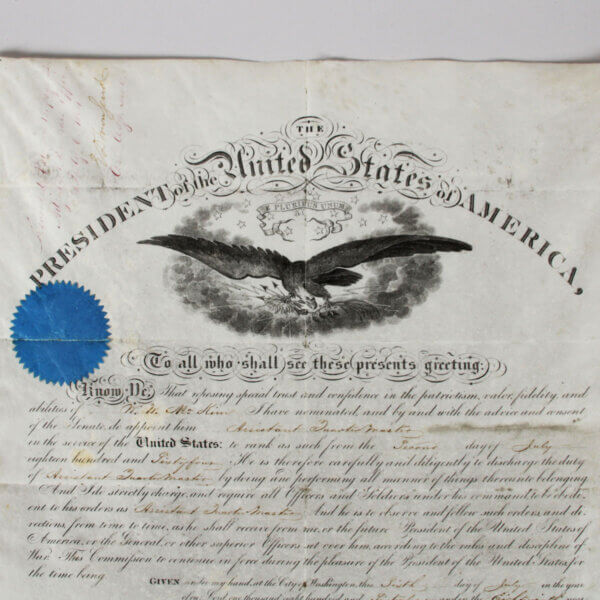 THE
PRESIDENT of the United States of AMERICA,
E PLURIBUS UNUM
To all who shall see these presents greeting:
Know Ye, That reposing special trust and confidence in the patriotism, valor, fidelity, and
abilities of W. W. McKim I have nominated, and by and with the advice and consent
of the Senate, do appoint him Assistant Quarter Master
in the service of the United States: to rank as such from the Second day of July
eighteen hundred and Sixty four. He is therefore carefully and diligently to discharge the duty
of Assistant Quarter Master by doing and performing all manner of things thereunto belonging.
And I do strictly charge, and require all Officers and Soldiers under his command to be obedi-
ent to his orders as Assistant Quarter Master And he is to observe and follow such orders, and di-
rections, from time to time, as he shall receive from me, or the future President of the United States of
America, or the General, or other superior Officers set over him, according to the rules and discipline of
War. This Commission to continue in force during the pleasure of the President of the United States for
the time being.
GIVEN under my hand, at the City of Washington, this Sixth day of July in the year
of our Lord one thousand eight hundred and in the